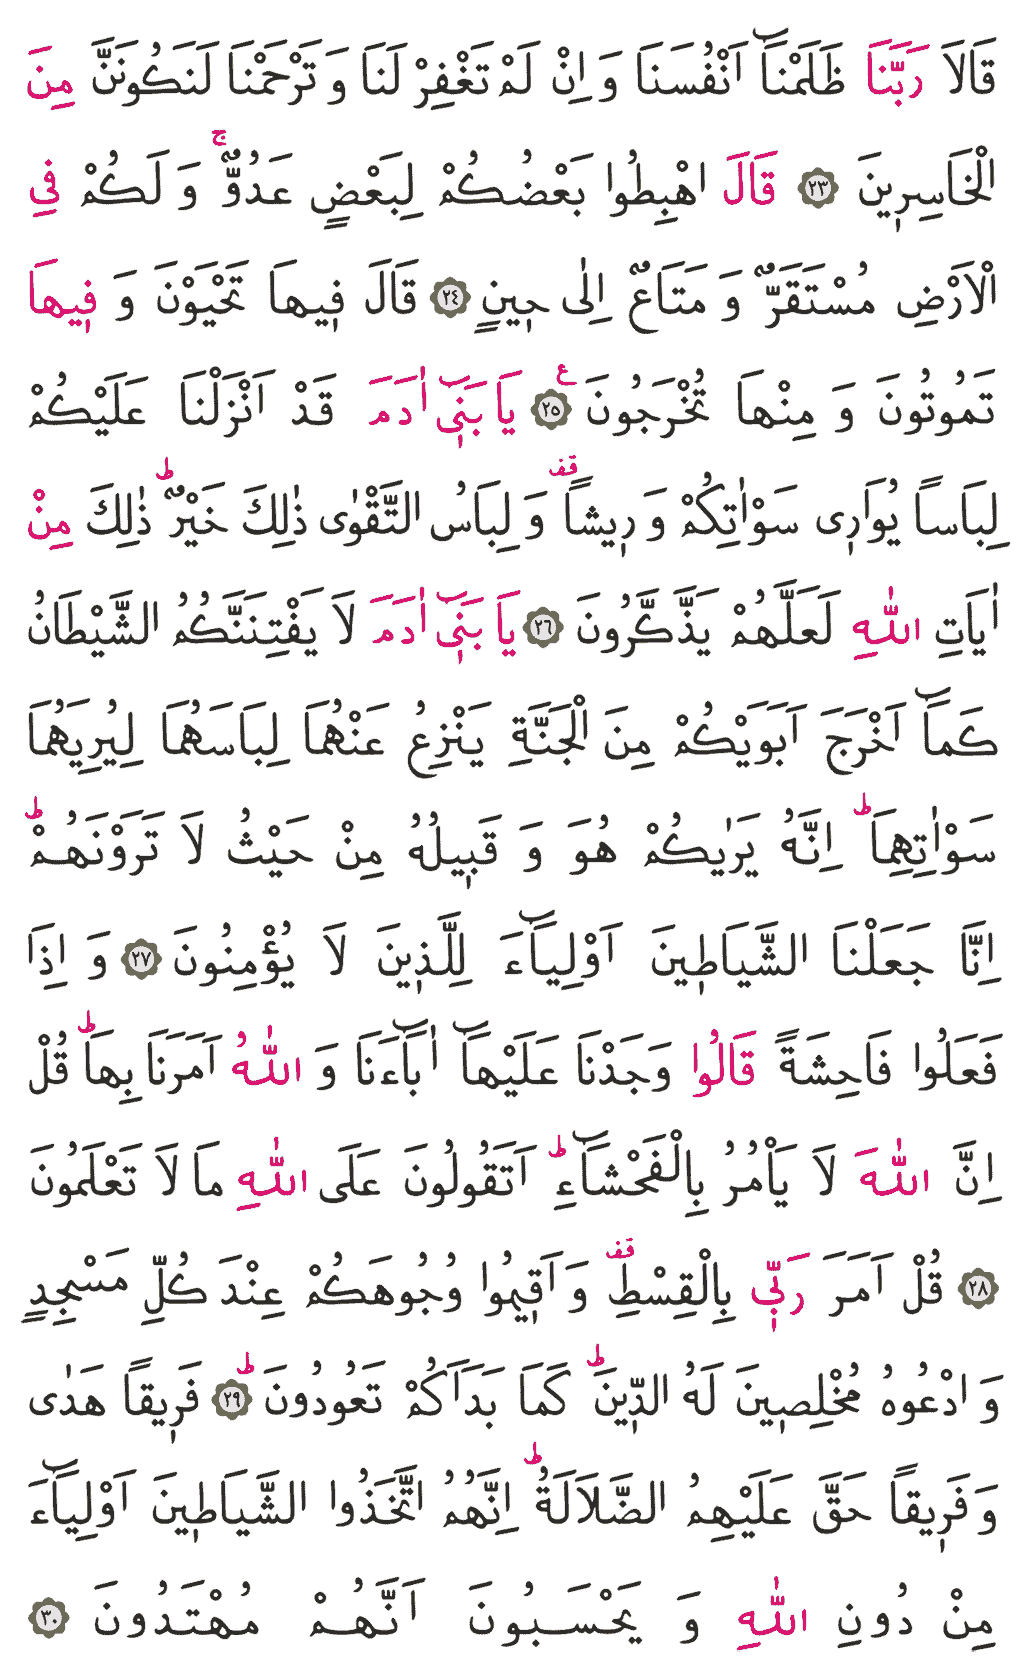 قَالَا رَبَّنَا ظَلَمْنَٓا اَنْفُسَنَا وَ اِنْ لَمْ تَغْفِرْ لَنَا وَ تَرْحَمْنَا لَنَكُونَنَّ مِنَ
الْخَاسِر۪ينَ ﴿٢٣﴾ قَالَ اهْبِطُوا بَعْضُكُمْ لِبَعْضٍ عَدُوٌّۚ وَ لَكُمْ فِي
الْاَرْضِ مُسْتَقَرٌّ وَ مَتَاعٌ اِلٰى ح۪ينٍ ﴿٢٤﴾ قَالَ ف۪يهَا تَحْيَوْنَ وَ ف۪يهَا
تَمُوتُونَ وَ مِنْهَا تُخْرَجُونَ ࣖ ﴿٢٥﴾ يَا بَن۪ٓي اٰدَمَ قَدْ اَنْزَلْنَا عَلَيْكُمْ
لِبَاسًا يُوَار۪ي سَوْاٰتِكُمْ وَ ر۪يشًاࣞ وَ لِبَاسُ التَّقْوٰى ذٰلِكَ خَيْرٌؕ ذٰلِكَ مِنْ
اٰيَاتِ اللّٰهِ لَعَلَّهُمْ يَذَّكَّرُونَ ﴿٢٦﴾ يَا بَن۪ٓي اٰدَمَ لَا يَفْتِنَنَّكُمُ الشَّيْطَانُ
كَمَٓا اَخْرَجَ اَبَوَيْكُمْ مِنَ الْجَنَّةِ يَنْزِعُ عَنْهُمَا لِبَاسَهُمَا لِيُرِيَهُمَا
سَوْاٰتِهِمَاؕ اِنَّهُ يَرٰيكُمْ هُوَ وَ قَب۪يلُهُ مِنْ حَيْثُ لَا تَرَوْنَهُمْؕ
اِنَّا جَعَلْنَا الشَّيَاط۪ينَ اَوْلِيَٓاءَ لِلَّذ۪ينَ لَا يُؤْمِنُونَ ﴿٢٧﴾ وَ اِذَا
فَعَلُوا فَاحِشَةً قَالُوا وَجَدْنَا عَلَيْهَٓا اٰبَٓاءَنَا وَ اللّٰهُ اَمَرَنَا بِهَاؕ قُلْ
اِنَّ اللّٰهَ لَا يَأْمُرُ بِالْفَحْشَٓاءِؕ اَتَقُولُونَ عَلَى اللّٰهِ مَا لَا تَعْلَمُونَ
﴿٢٨﴾ قُلْ اَمَرَ رَبّ۪ي بِالْقِسْطِࣞ وَ اَق۪يمُوا وُجُوهَكُمْ عِنْدَ كُلِّ مَسْجِدٍ
وَ ادْعُوهُ مُخْلِص۪ينَ لَهُ الدّ۪ينَؕ كَمَا بَدَاَكُمْ تَعُودُونَؕ ﴿٢٩﴾ فَر۪يقًا هَدٰى
وَ فَر۪يقًا حَقَّ عَلَيْهِمُ الضَّلَالَةُؕ اِنَّهُمُ اتَّخَذُوا الشَّيَاط۪ينَ اَوْلِيَٓاءَ
مِنْ دُونِ اللّٰهِ وَ يَحْسَبُونَ اَنَّهُمْ مُهْتَدُونَ ﴿٣٠﴾